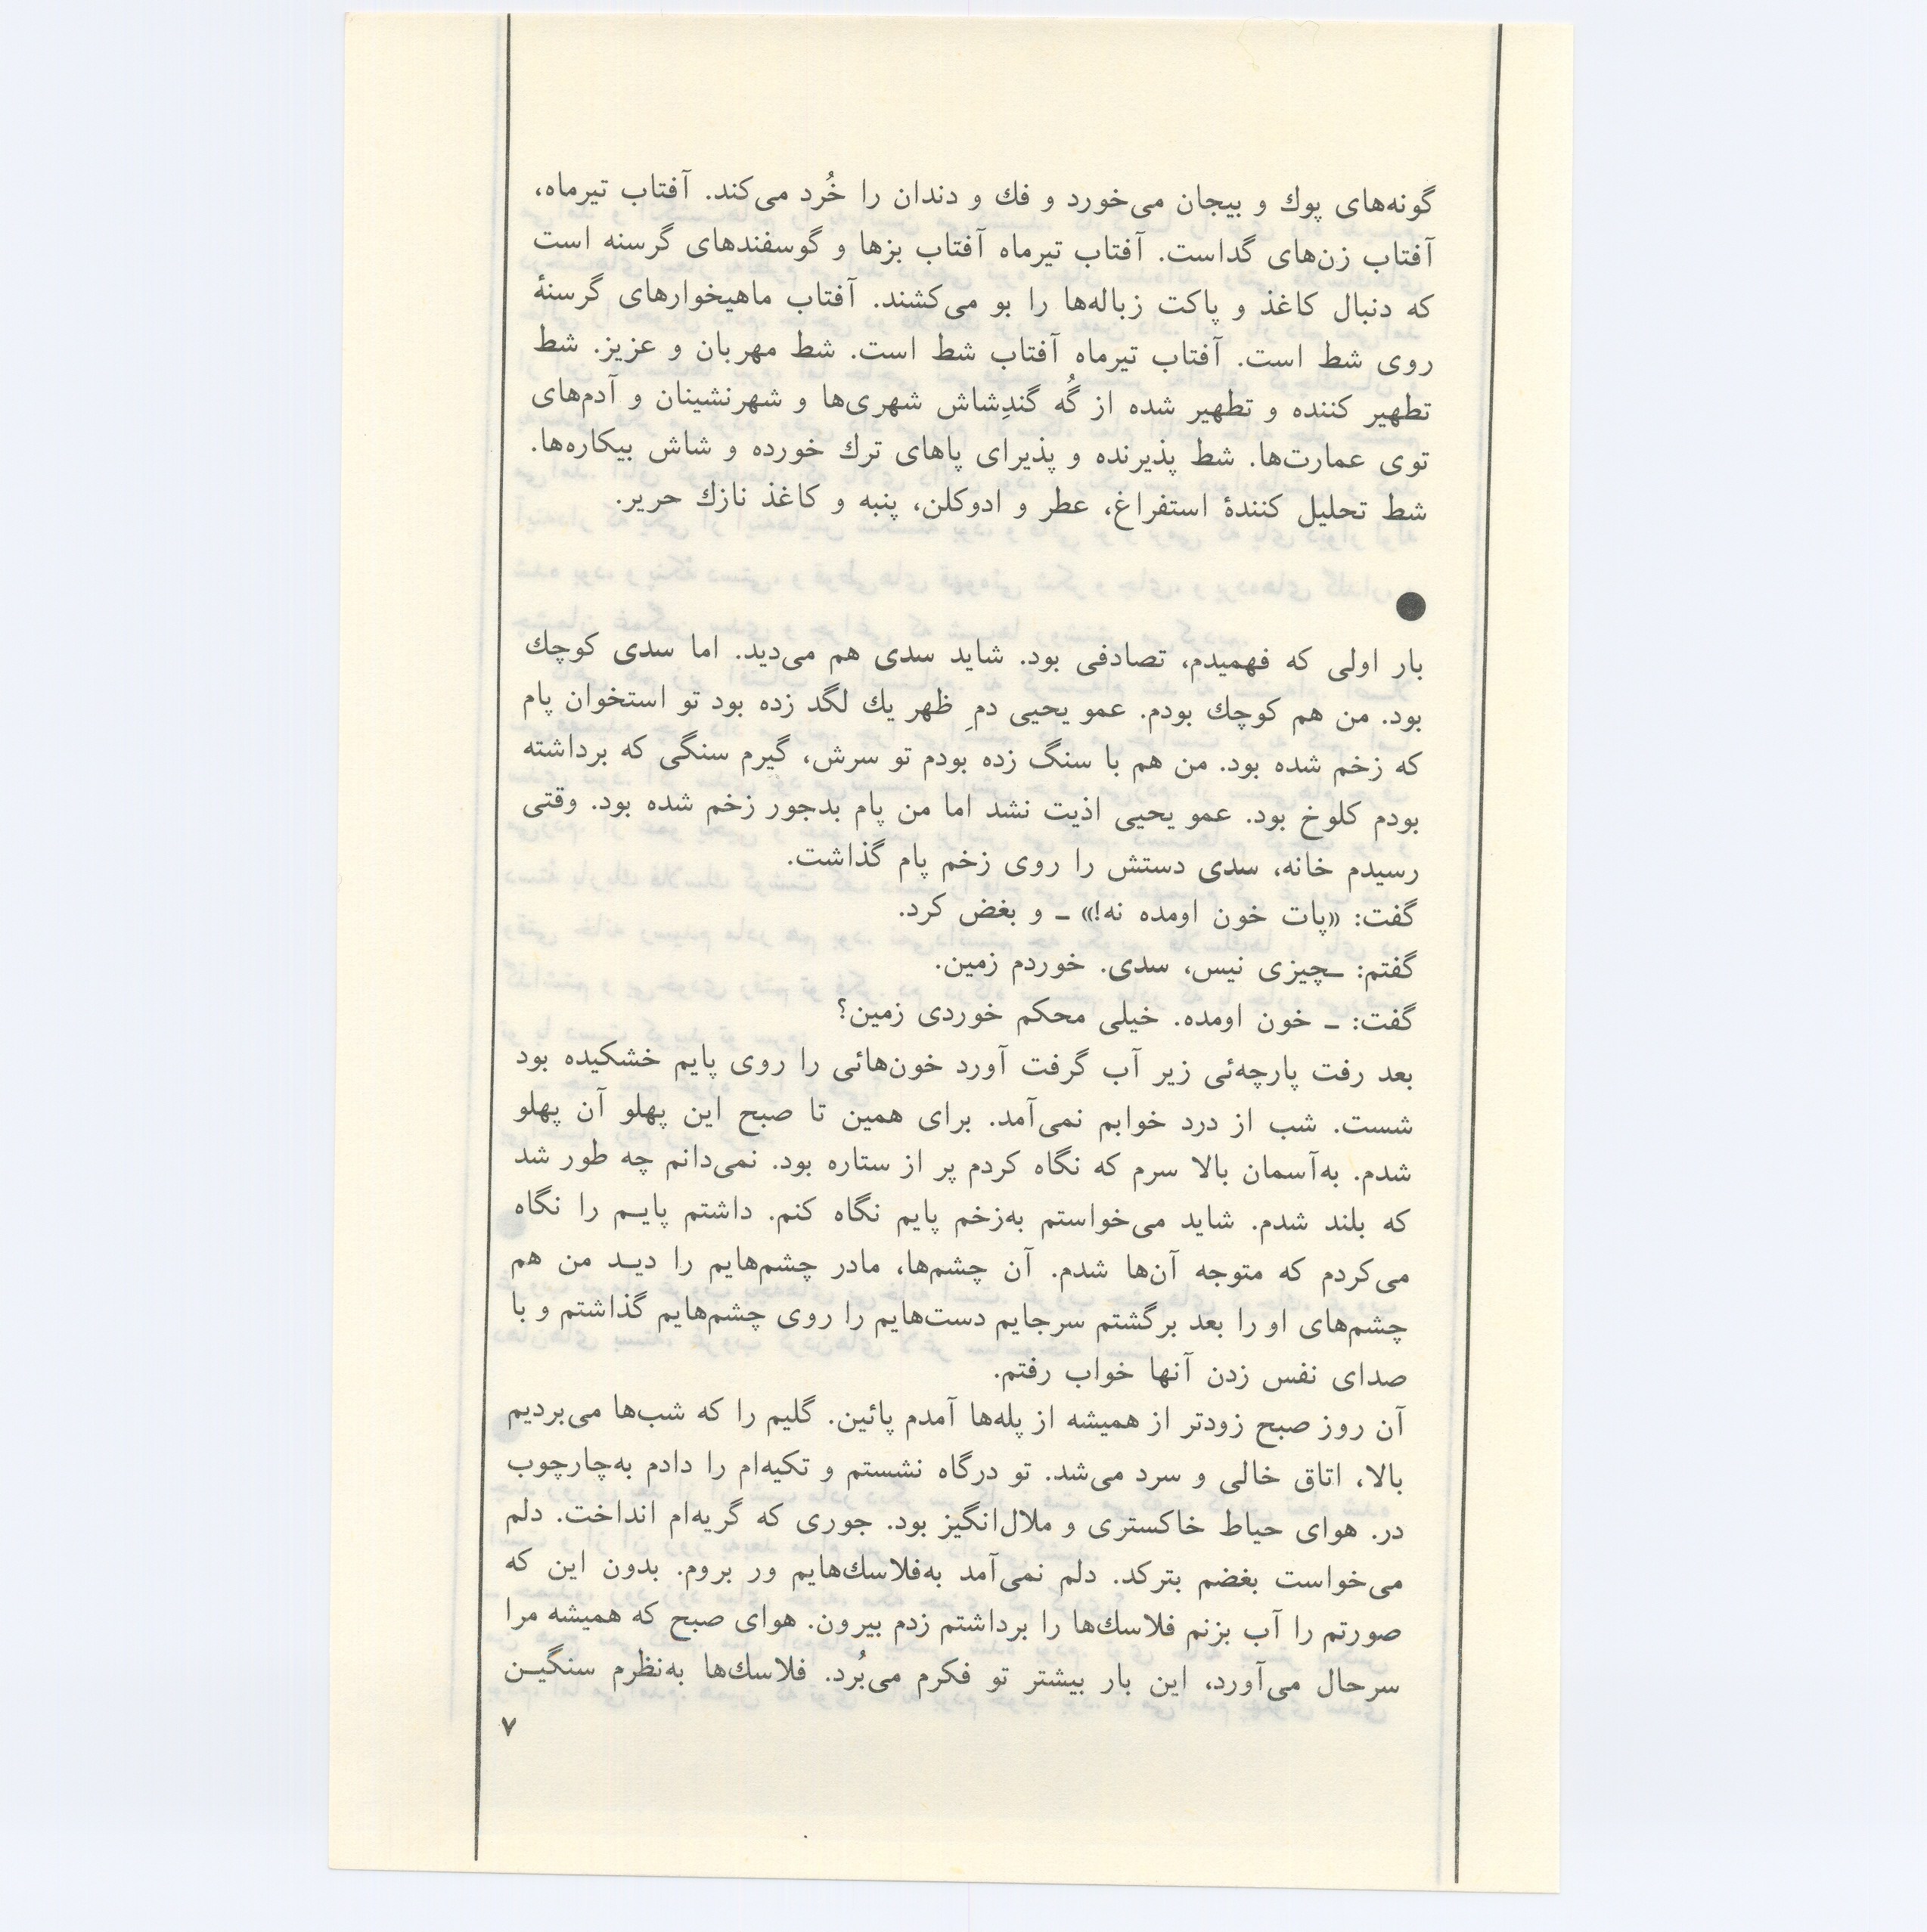 گونه‌های پوك و بیجان می‌خورد و فك و دندان را خُرد می‌کند. آفتاب تیرماه،
آفتاب زن‌های گداست. آفتاب تیرماه آفتاب بزها و گوسفندهای گرسنه است
که دنبال کاغذ و پاکت زباله‌ها را بو می‌کشند. آفتاب ماهیخوارهای گرسنهٔ
روی شط است. آفتاب تیرماه آفتاب شط است. شط مهربان و عزیز. شط
تطهیر کننده و تطهیر شده از گُه گندِشاش شهری‌ها و شهرنشینان و آدم‌های
توی عمارت‌ها. شط پذیرنده و پذیرای پاهای ترك خورده و شاش بیکاره‌ها.
شط تحلیل کنندهٔ استفراغ، عطر و ادوکلن، پنبه و کاغذ نازك حریر.
●
بار اولی که فهمیدم، تصادفی بود. شاید سدی هم می‌دید. اما سدی کوچك
بود. من هم کوچك بودم. عمو یحیی دمِ ظهر یك لگد زده بود تو استخوان پام
که زخم شده بود. من هم با سنگ زده بودم تو سرش، گیرم سنگی که برداشته
بودم کلوخ بود. عمو یحیی اذیت نشد اما من پام بدجور زخم شده بود. وقتی
رسیدم خانه، سدی دستش را روی زخم پام گذاشت.
گفت: «پات خون اومده نه!» ـ و بغض کرد.
گفتم: ـچیزی نیس، سدی. خوردم زمین.
گفت: ـ خون اومده. خیلی محکم خوردی زمین؟
بعد رفت پارچه‌ئی زیر آب گرفت آورد خون‌هائی را روی پایم خشکیده بود
شست. شب از درد خوابم نمی‌آمد. برای همین تا صبح این پهلو آن پهلو
شدم. به‌آسمان بالا سرم که نگاه کردم پر از ستاره بود. نمی‌دانم چه طور شد
که بلند شدم. شاید می‌خواستم به‌زخم پایم نگاه کنم. داشتم پایـم را نگاه
می‌کردم که متوجه آن‌ها شدم. آن چشم‌ها، مادر چشم‌هایم را دیـد من هم
چشم‌های او را بعد برگشتم سرجایم دست‌هایم را روی چشم‌هایم گذاشتم و با
صدای نفس زدن آنها خواب رفتم.
آن روز صبح زودتر از همیشه از پله‌ها آمدم پائین. گلیم را که شب‌ها می‌بردیم
بالا، اتاق خالی و سرد می‌شد. تو درگاه نشستم و تکیه‌ام را دادم به‌چارچوب
در. هوای حیاط خاکستری و ملال‌انگیز بود. جوری که گریه‌ام انداخت. دلم
می‌خواست بغضم بترکد. دلم نمی‌آمد به‌فلاسك‌هایم ور بروم. بدون این که
صورتم را آب بزنم فلاسك‌ها را برداشتم زدم بیرون. هوای صبح که همیشه مرا
سرحال می‌آورد، این بار بیشتر تو فکرم می‌بُرد. فلاسك‌ها به‌نظرم سنگیـن
۷